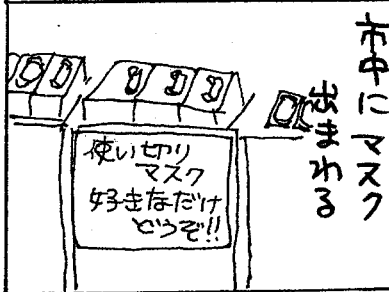 市中にマスク
出まわる
使い切り
マスク
好きなだけ
どうぞ!!